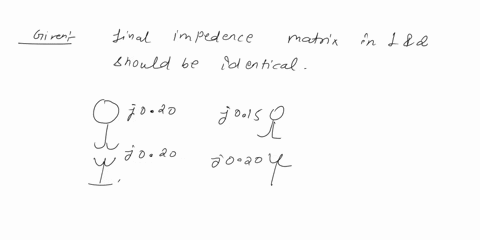 Given:- final impedence matrix in 1 & 2
should be identical.
j0.20 j0.15
j0.20 j0.20